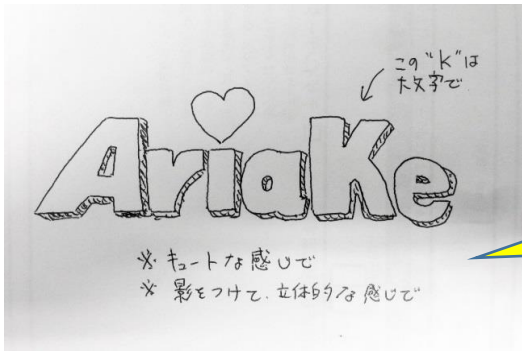 この"K"は
大文字で
AriaKe
※ キュートな感じで
※ 影をつけて、立体的な感じで